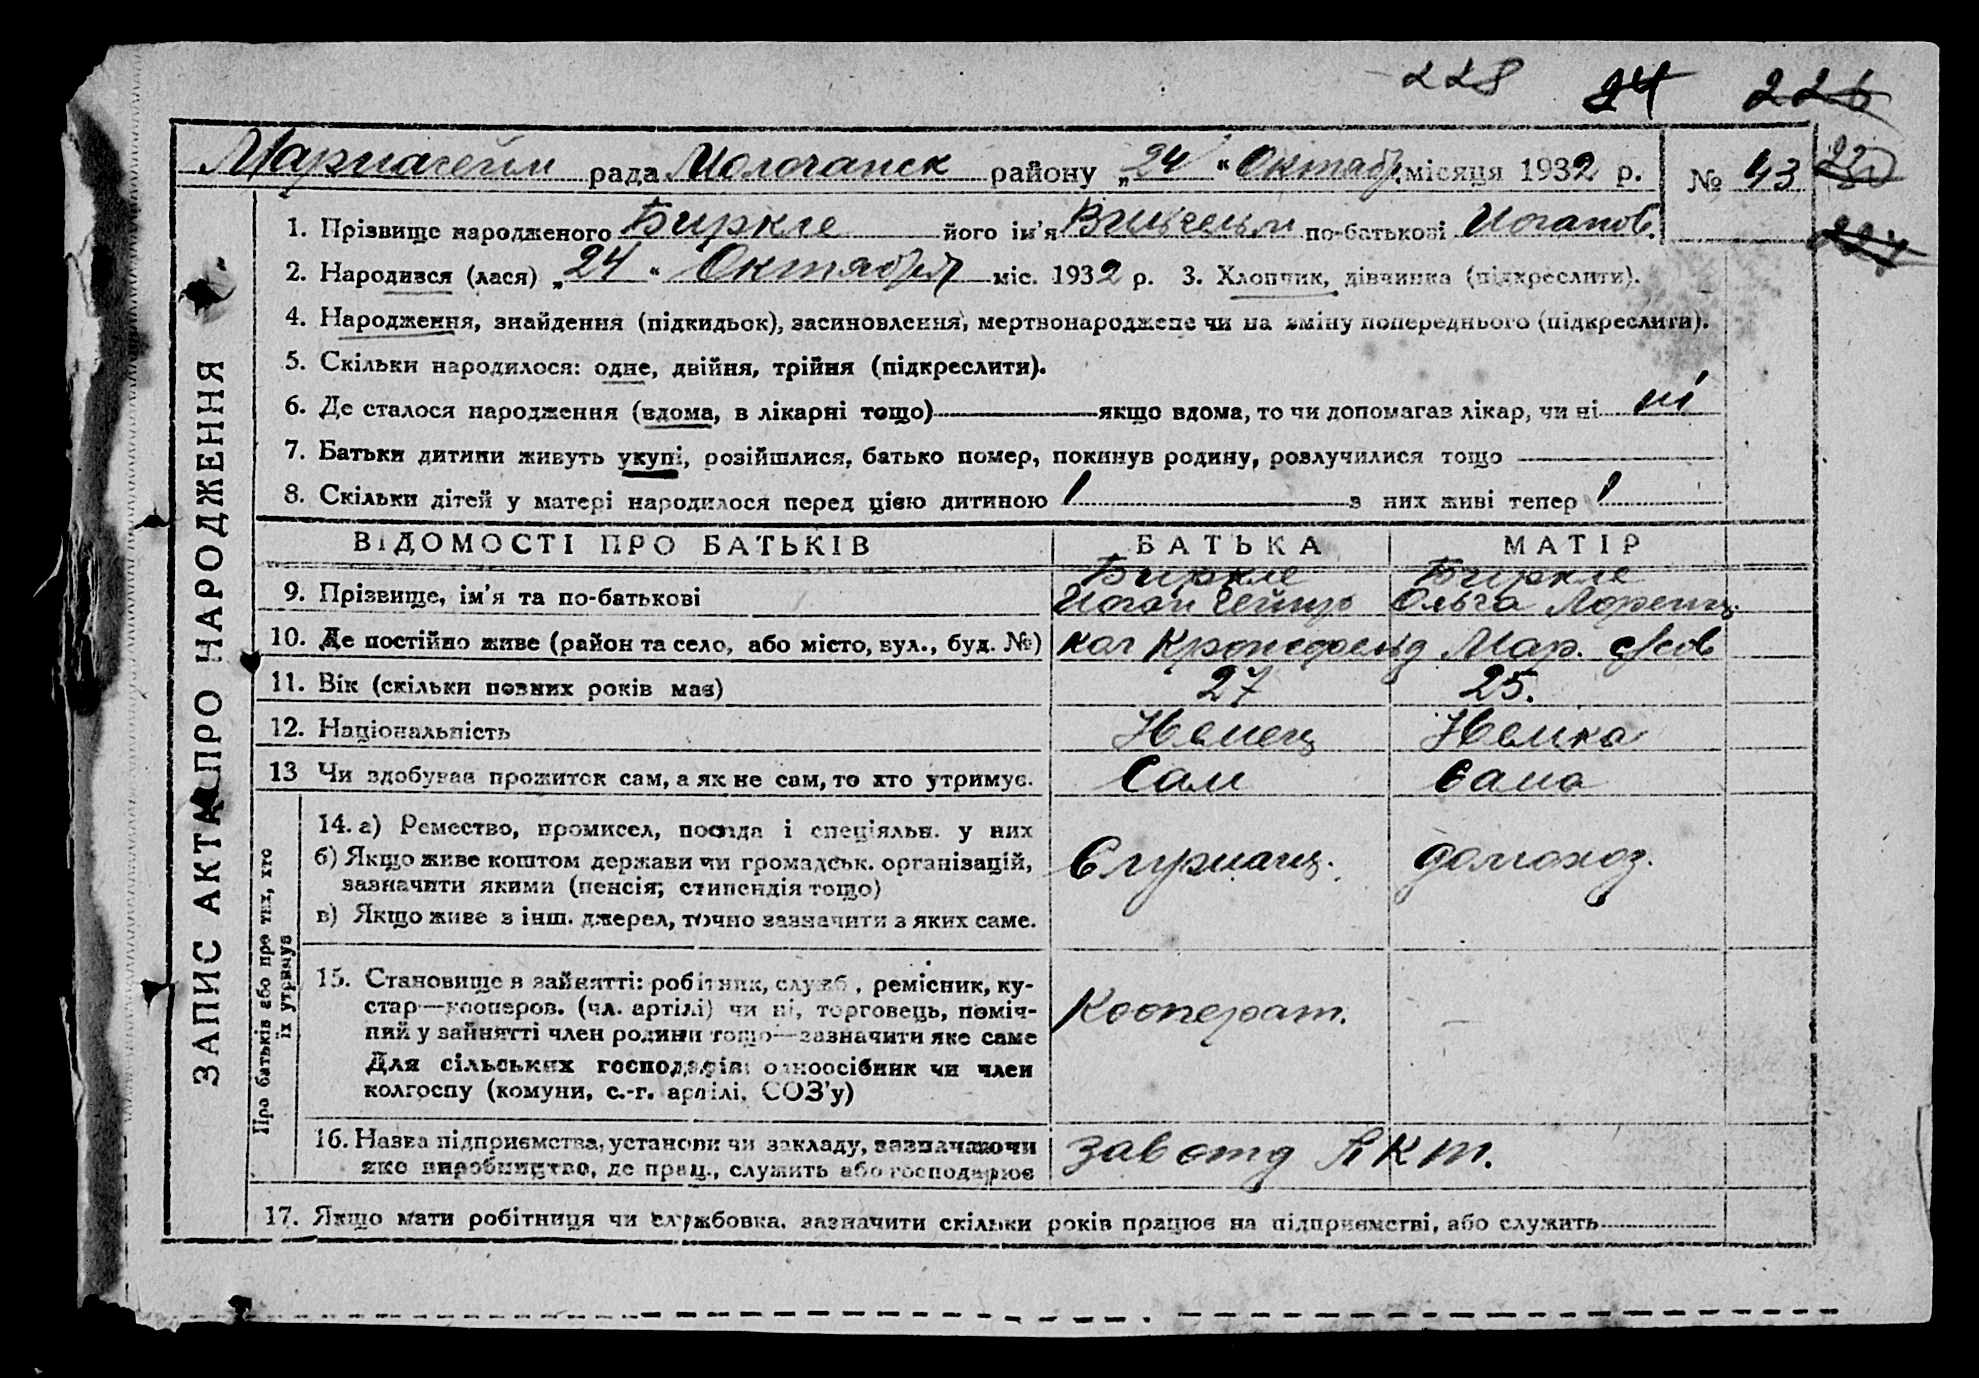 228 24 226
Мариагейм рада Молочанск району „24“ Октяб. місяця 1932 р. № 43 230
1. Прізвище народженого Биркле його ім'я Вильгельм по-батькові Иоганов. 227
2. Народився (лася) „24“ Октября міс. 1932 р. 3. Хлопчик, дівчинка (підкреслити).
4. Народження, знайдення (підкидьок), засиновлення, мертвонароджене чи на зміну попереднього (підкреслити).
5. Скільки народилося: одне, двійня, трійня (підкреслити).
6. Де сталося народження (вдома, в лікарні тощо) якщо вдома, то чи допомагав лікар, чи ні ні
7. Батьки дитини живуть укупі, розійшлися, батько помер, покинув родину, розлучилися тощо
8. Скільки дітей у матері народилося перед цією дитиною 1 з них живі тепер 1
ЗАПИС АКТА ПРО НАРОДЖЕННЯ
ВІДОМОСТІ ПРО БАТЬКІВ БАТЬКА МАТІР
Биркле Биркле
9. Прізвище, ім'я та по-батькові Иоган Гейнр Ольга Лоренц.
10. Де постійно живе (район та село, або місто, вул., буд. №) кол Кронсфельд Мар.
11. Вік (скільки повних років має) 27 25.
12. Національність Немец Немка
13 Чи здобував прожиток сам, а як не сам, то хто утримує. Сам Сама
Про батьків або про тих, хто
їх утримує
14. а) Ремество, промисел, посада і спеціяльн. у них
б) Якщо живе коштом держави чи громадськ. організацій, домохоз.
зазначити якими (пенсія, стипендія тощо)
в) Якщо живе з інш. джерел, точно зазначити з яких саме.
15. Становище в зайнятті: робітник, служб., ремісник, ку-
стар—кооперов. (чл. артілі) чи ні, торговець, поміч- Кооперат. —
ний у зайнятті член родини тощо—зазначити яке саме
Для сільських господарів: одноосібник чи член
колгоспу (комуни, с.-г. артілі, СОЗ'у)
16. Назва підприємства, установи чи закладу, зазначаючи зав отд
яке виробництво, де прац., служить або господарює
17. Якщо мати робітниця чи службовка, зазначити скільки років працює на підприємстві, або служить